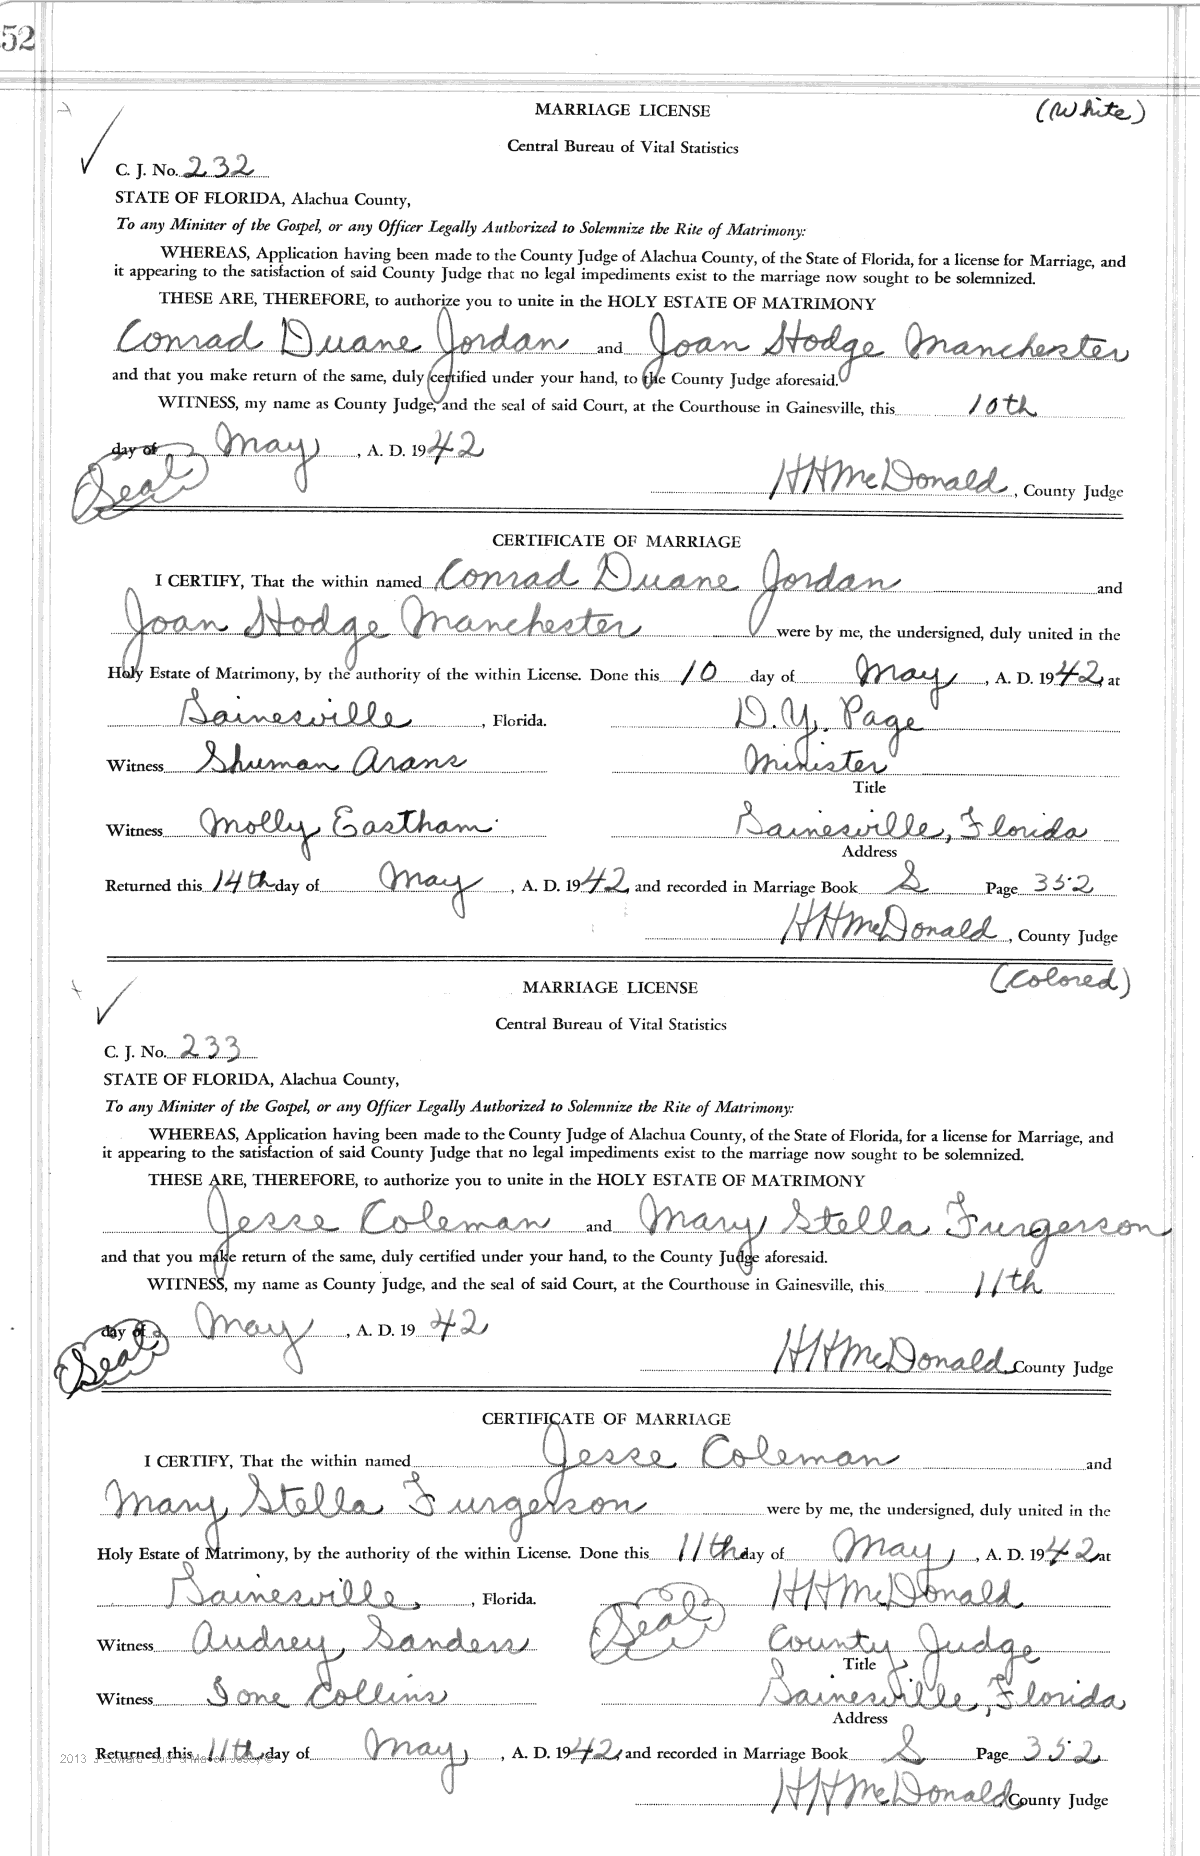 52
MARRIAGE LICENSE
(White)
Central Bureau of Vital Statistics
C. J. No. 232
STATE OF FLORIDA, Alachua County,
To any Minister of the Gospel, or any Officer Legally Authorized to Solemnize the Rite of Matrimony:
WHEREAS, Application having been made to the County Judge of Alachua County, of the State of Florida, for a license for Marriage, and
it appearing to the satisfaction of said County Judge that no legal impediments exist to the marriage now sought to be solemnized.
THESE ARE, THEREFORE, to authorize you to unite in the HOLY ESTATE OF MATRIMONY
Conrad Duane Jordan and Joan Hodge Manchester
and that you make return of the same, duly certified under your hand, to the County Judge aforesaid.
WITNESS, my name as County Judge, and the seal of said Court, at the Courthouse in Gainesville, this 10th
day of May, A. D. 1942
(Seal)
HHMcDonald, County Judge
CERTIFICATE OF MARRIAGE
I CERTIFY, That the within named Conrad Duane Jordan and
Joan Hodge Manchester were by me, the undersigned, duly united in the
Holy Estate of Matrimony, by the authority of the within License. Done this 10 day of May, A. D. 1942, at
Gainesville, Florida. D.Y. Page
Witness Shuman Arans Minister
Title
Witness Molly Eastham Gainesville, Florida
Address
Returned this 14th day of May, A. D. 1942 and recorded in Marriage Book S Page 352
HHMcDonald, County Judge
(Colored)
MARRIAGE LICENSE
Central Bureau of Vital Statistics
C. J. No. 233
STATE OF FLORIDA, Alachua County,
To any Minister of the Gospel, or any Officer Legally Authorized to Solemnize the Rite of Matrimony:
WHEREAS, Application having been made to the County Judge of Alachua County, of the State of Florida, for a license for Marriage, and
it appearing to the satisfaction of said County Judge that no legal impediments exist to the marriage now sought to be solemnized.
THESE ARE, THEREFORE, to authorize you to unite in the HOLY ESTATE OF MATRIMONY
Jesse Coleman and Mary Stella Furgerson
and that you make return of the same, duly certified under your hand, to the County Judge aforesaid.
WITNESS, my name as County Judge, and the seal of said Court, at the Courthouse in Gainesville, this 11th
day of May, A. D. 1942
(Seal)
HHMcDonald County Judge
CERTIFICATE OF MARRIAGE
I CERTIFY, That the within named Jesse Coleman and
Mary Stella Furgerson were by me, the undersigned, duly united in the
Holy Estate of Matrimony, by the authority of the within License. Done this 11th day of May, A. D. 1942 at
Gainesville, Florida. (Seal) HHMcDonald
Witness Audrey Sanders County Judge
Title
Witness Ione Collins Gainesville, Florida
Address
2013
Returned this 11th day of May, A. D. 1942, and recorded in Marriage Book S Page 352
HHMcDonald, County Judge